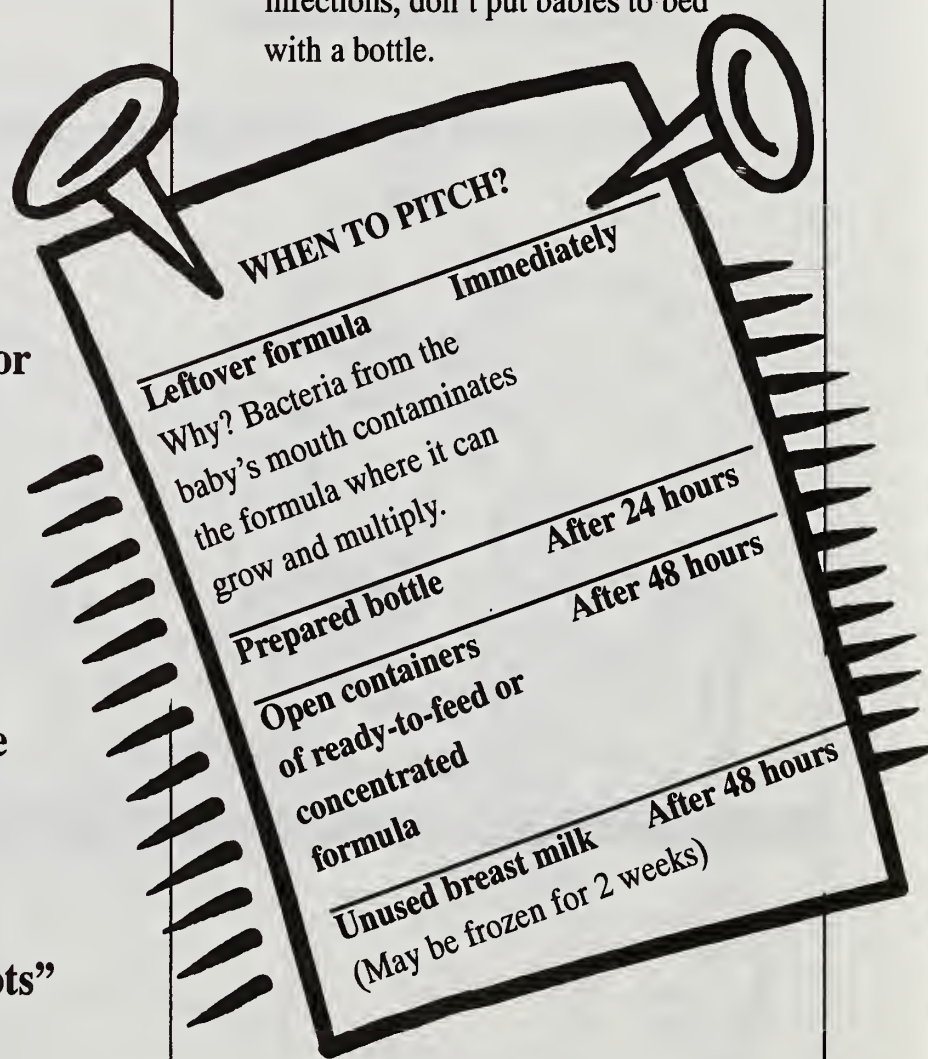 infections, don't put babies to bed
with a bottle.
or
e
ots"
WHEN TO PITCH?
Leftover formula Immediately
Why? Bacteria from the
baby's mouth contaminates
the formula where it can
grow and multiply.
Prepared bottle After 24 hours
Open containers After 48 hours
of ready-to-feed or
concentrated
formula
Unused breast milk After 48 hours
(May be frozen for 2 weeks)